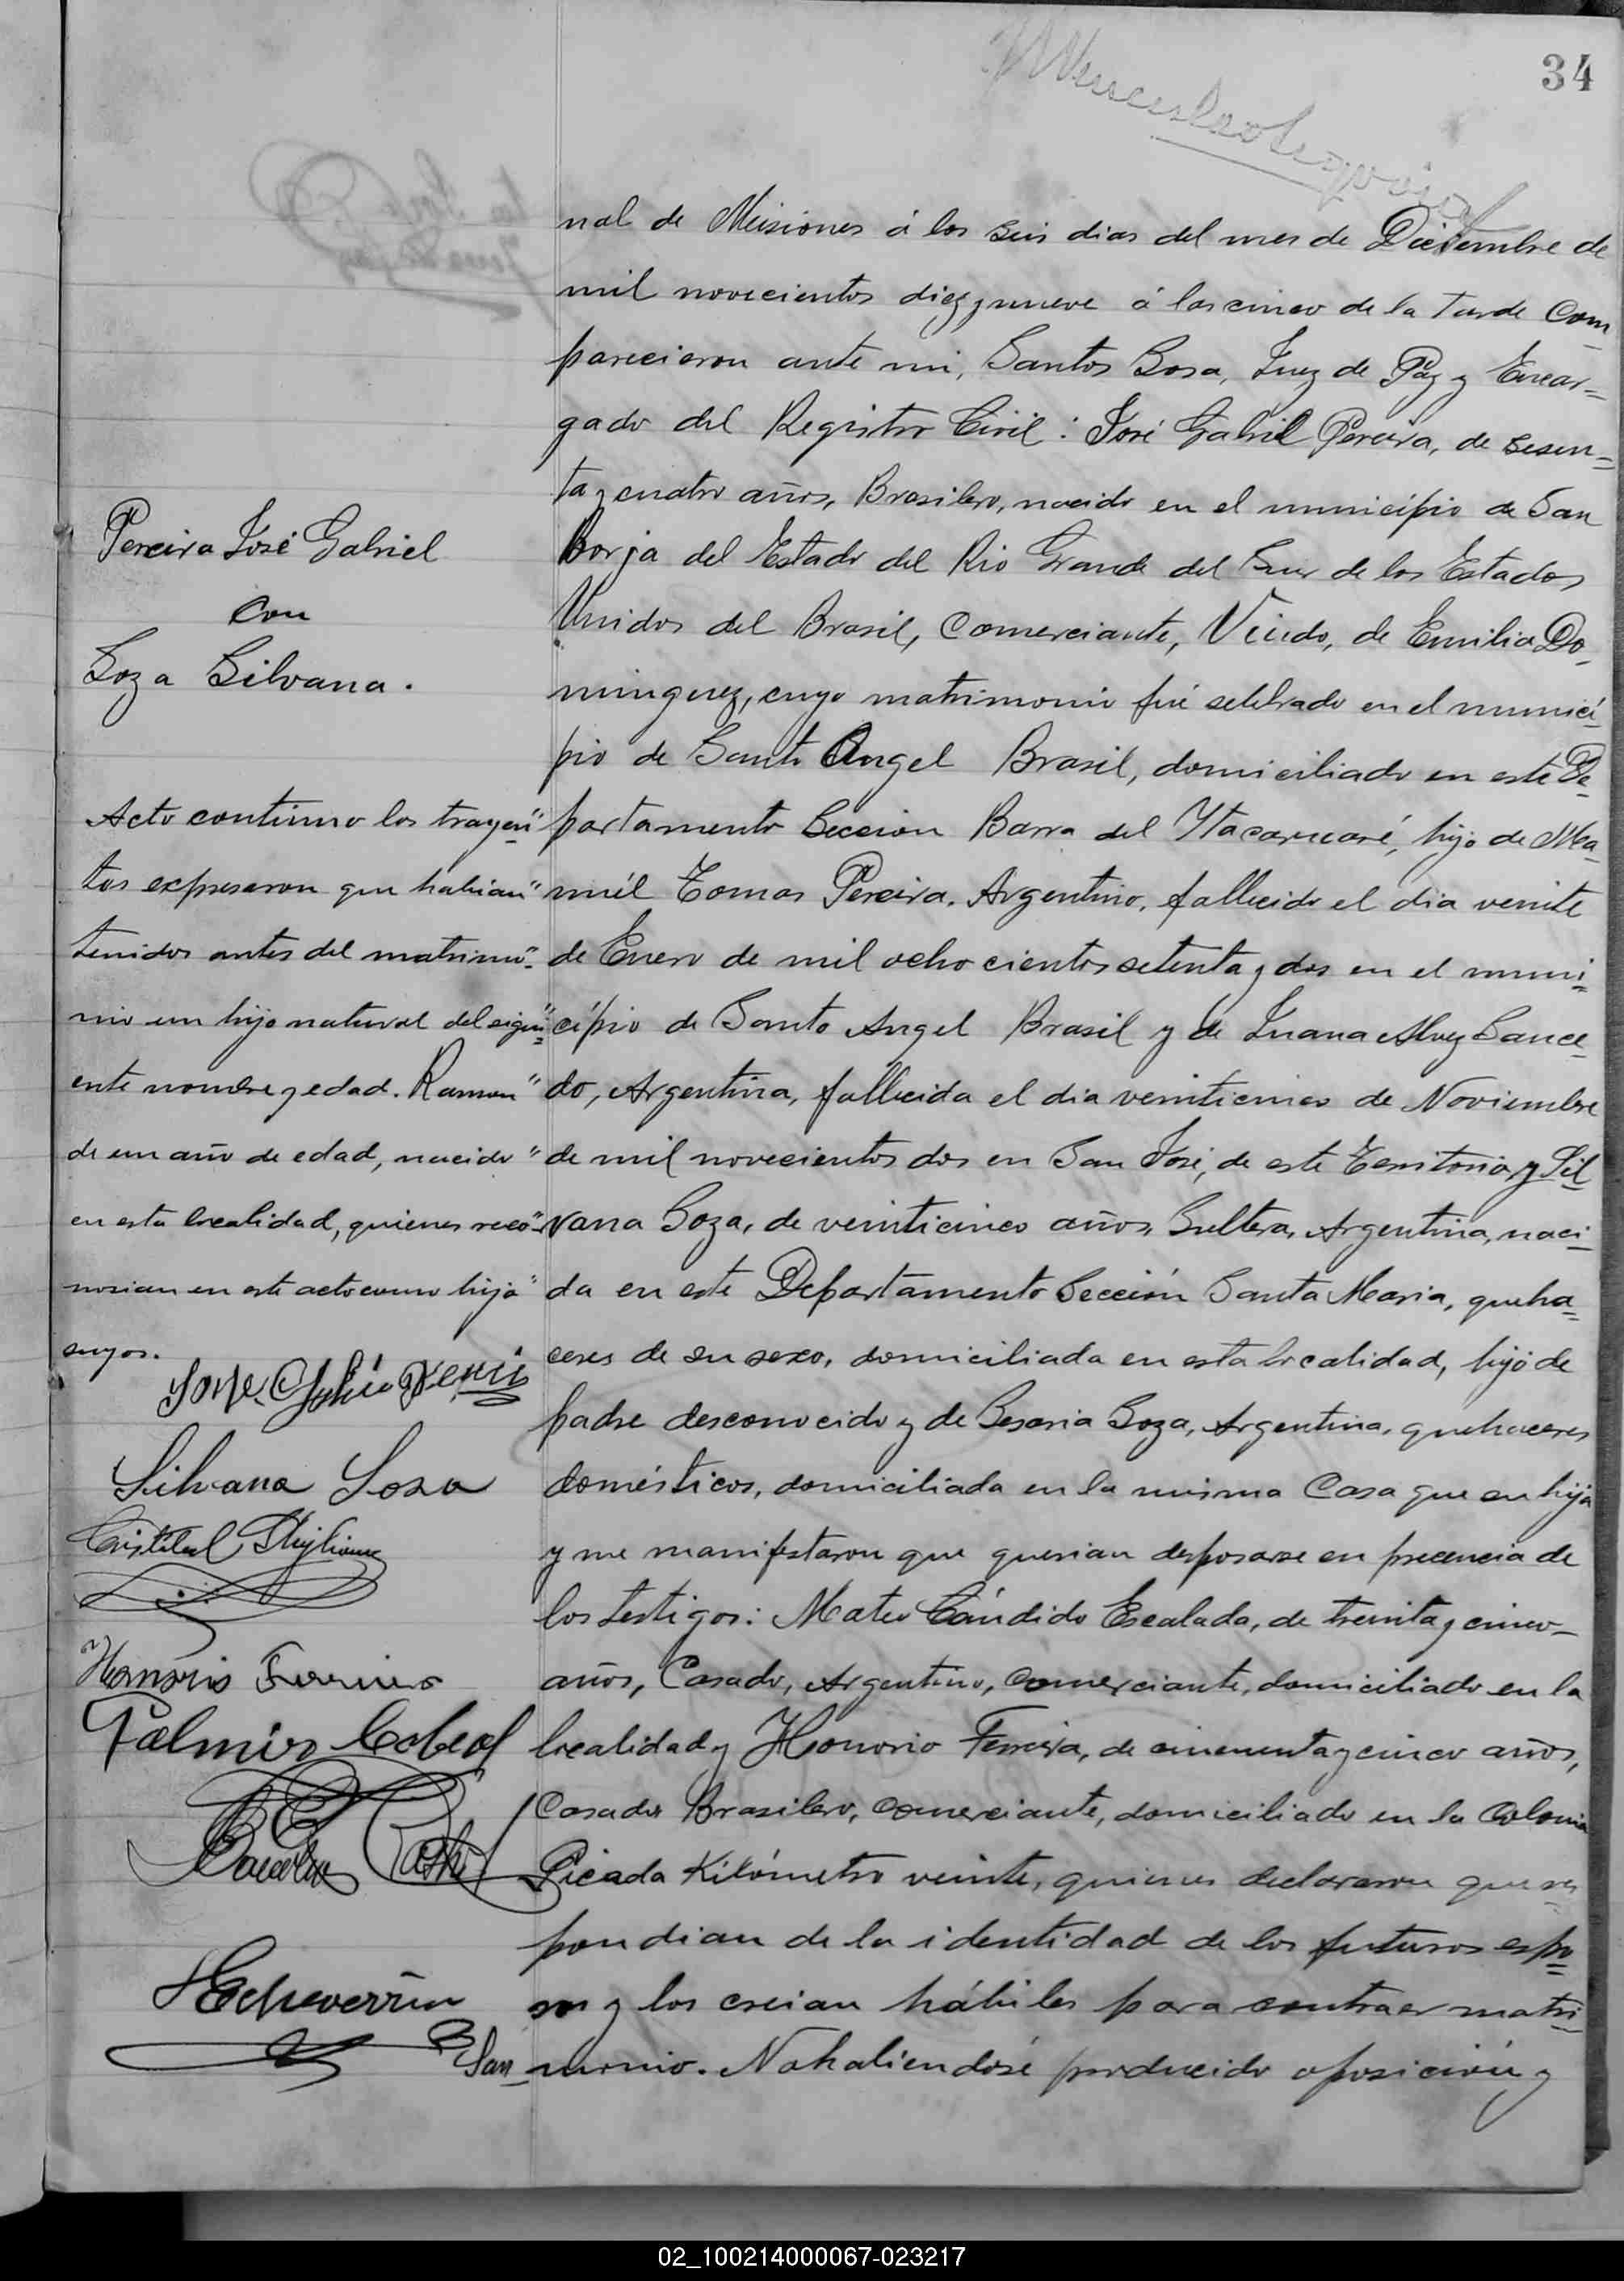 34
nal de Misiones á los seis dias del mes de Diciembre de
mil novecientos diez y nueve á las cinco de la tarde Com
parecieron ante mi, Santos Sosa, Juez de Paz y Encar=
gado del Registro Civil: José Gabriel Pereira, de sesen=
ta y cuatro años, Brasilero, nacido en el municipio de San
Borja del Estado del Rio Grande del Sur de los Estados
Unidos del Brasil, Comerciante, Viudo, de Emilia Do-
minguez, cuyo matrimonio fué selebrado en el munici-
pio de Santo Angel Brasil, domiciliado en este De-
partamento Seccion Barra del Ytacaruaré, hijo de Ma-
nuél Tomas Pereira, Argentino, fallecido el dia veinte
de Enero de mil ochocientos setenta y dos en el muni=
cípio de Santo Angel Brasil y de Juana Alvez Sauce-
do, Argentina, fallecida el dia veinticinco de Noviembre
de mil novecientos dos en San José, de este Territorio, y Sil
vana Soza, de veinticinco años, Soltera, Argentina, naci-
da en este Departamento Sección Santa Maria, queha=
ceres de su sexo, domiciliada en esta localidad, hijo de
padre desconocido y de Soza, Argentina, quehaceres
domésticos, domiciliada en la misma Casa que su hija
y me manifestaron que querian desposarse en precencia de
los testigos: Mateo Cándido Escalada, de treinta y cinco-
años, Casado, Argentino, Comerciante, domiciliado en la
localidad y Honorio Ferreira, de cincuenta y cinco años,
Casado Brasilero, comerciante, domiciliado en la Colonia
Picada Kilómetro veinte, quienes declararon que res
pondian de la identidad de los futuros espo=
sos y los creian hábiles para contraer matri-
monio. No habiendosé producido oposición y
Pereira José Gabriel
con
Soza Silvana.
Acto continuo los trayen"
tes expresaron que habian"
tenidos antes del matrimo"-
nio un hijo natural del sigui"=
ente nombre y edad. Ramon"
de un año de edad, nacido"
en esta localidad, quienes reco"-
nosian en este acto como hijo"
suyos.
Silvana Sosa
Honorio Ferreira
Palmiro
HEcheverria
San-
02_100214000067-023217